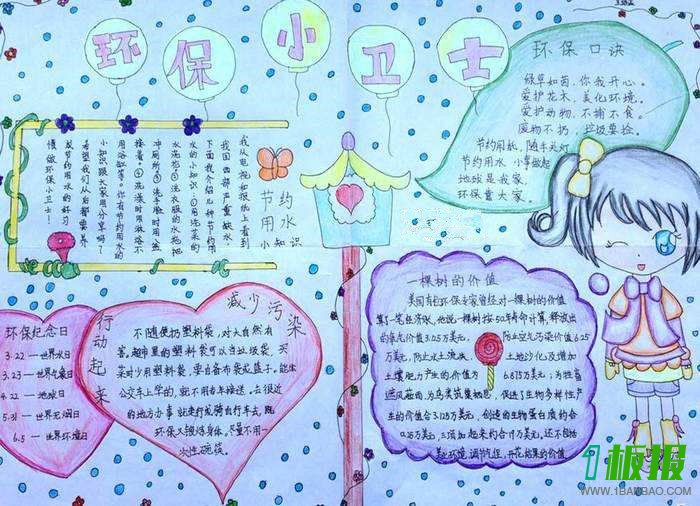 环保小卫士
环保口诀
绿草如茵，你我开心。
爱护花木，美化环境。
爱护动物，不捕不食。
废物不扔，垃圾要捡。
节约用纸，随手关灯
节约用水，小事做起
地球是我家，
环保靠大家。
节约
用水
小知识
我从电视和报纸上看到
我国西部严重缺水，
下面我介绍几种节约用
水的小知识：①用洗菜的
水浇花；②洗衣服的水拖地
冲厕所；③洗手脸时用盆
接着；④洗澡时用淋浴不
用浴缸等。你有节约用水的
小知识跟大家分享吗？
希望我们从后都要养
成节约用水的好习
惯做环保小卫士！
环保纪念日
3.22—世界水日
3.23—世界气象日
4.22—地球日
5.31—世界无烟日
6.5—世界环境日
减少污染
行动起来
不随便扔塑料袋，对大自然有
害，超市里的塑料袋可以当垃圾袋，买
菜时少用塑料袋，要自备布袋或篮子。能坐
公交车上学的，就不用爸妈接送。去很近
的地方办事就走行或骑自行车去，既
环保又锻炼身体。尽量不用一
次性碗筷。
一棵树的价值
美国有环保专家曾经对一棵树的价值
算了一笔经济帐。他说一棵树按50年寿命计算，释放出
的氧气价值3.125万美元，防止空气污染价值6.25
万美元，防止水土流失、土地沙化及增加
土壤肥力产生的价值为6.875万美元；为牲畜
遮风避雨，为鸟类筑巢栖息，促进生物多样性产
生的价值合3.125万美元，创造的生物蛋白质约合
0.25万美元，三项加起来约合19万美元。还不包括
调节气侯、开花结果的价值
1板报
WWW.1BANBAO.COM